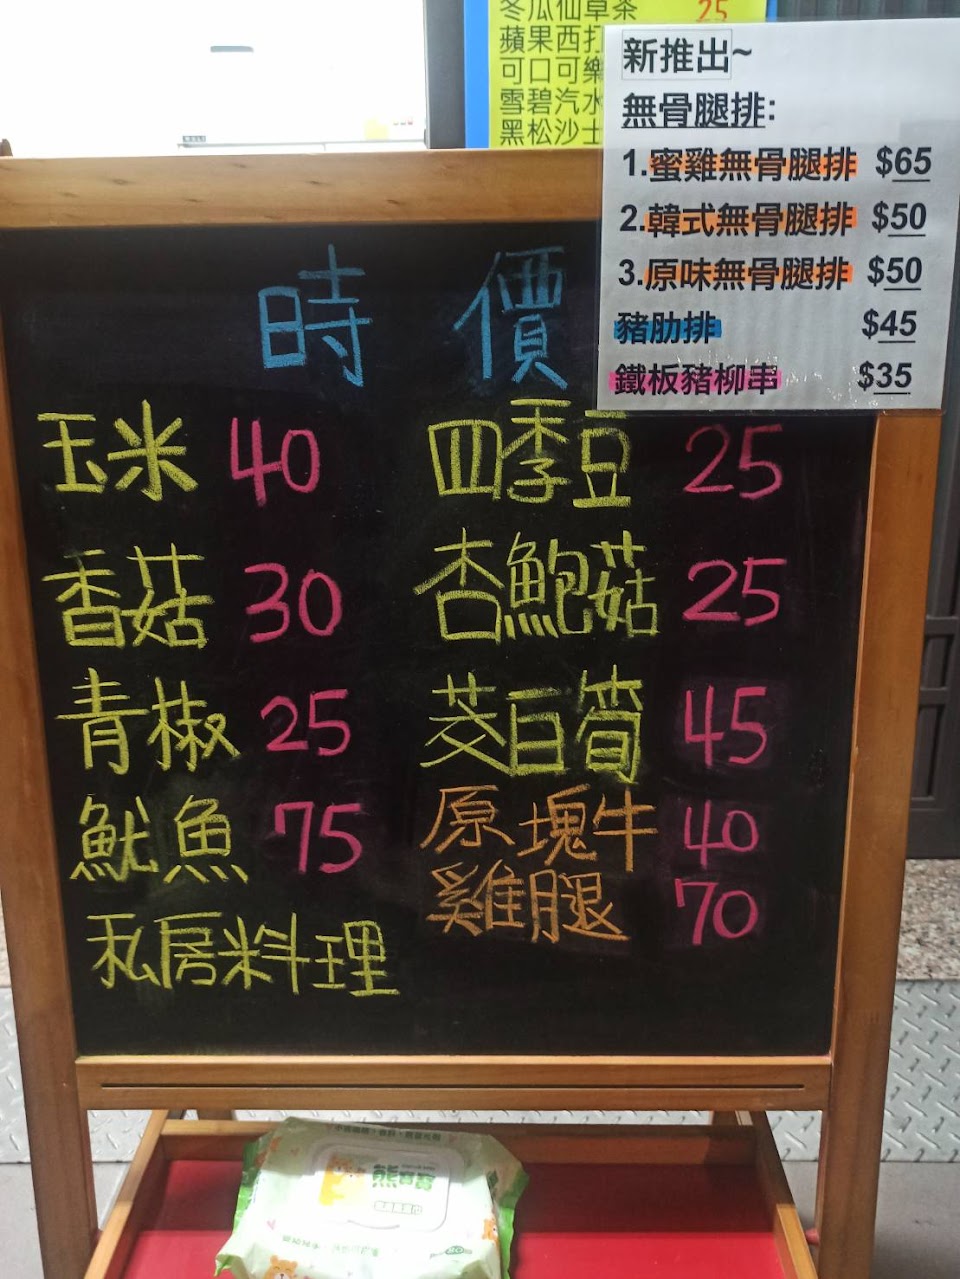 冬瓜仙草茶 25
蘋果西打
可口可樂
雪碧汽水
黑松沙士
新推出~
無骨腿排:
1.蜜雞無骨腿排 $65
2.韓式無骨腿排 $50
3.原味無骨腿排 $50
豬肋排 $45
鐵板豬柳串 $35
時價
玉米 40 四季豆 25
香菇 30 杏鮑菇 25
青椒 25 茭白筍 45
魷魚 75 原塊牛 40
雞腿 70
私房料理
熊寶寶